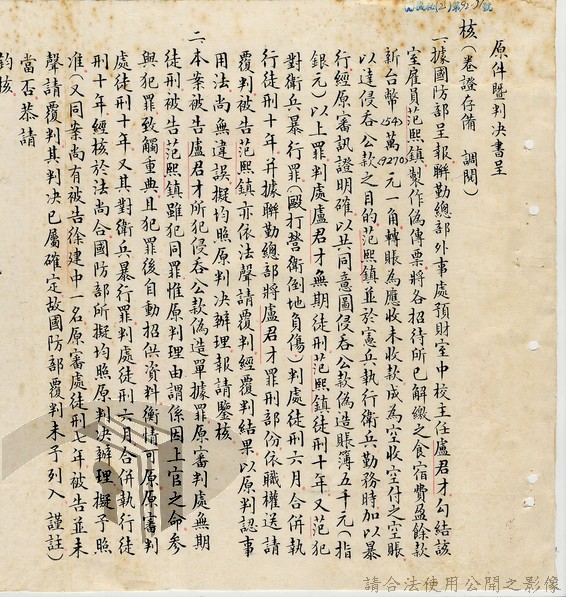 原件暨判決書呈
核(卷證存備 調閱)
一據國防部呈報聯勤總部外事處預財室中校主任盧君才勾結該
室雇員范熙鎮製作偽傳票將各招待所已解繳之食宿費盈餘款
新台幣154萬9270元一角轉賬為應收未收款成為空收空付之空賬
以達侵吞公款之目的范熙鎮並於憲兵執行衛兵勤務時加以暴
行經原審訊證明確以共同意圖侵吞公款偽造賬簿五千元(指
銀元)以上罪判處盧君才無期徒刑范熙鎮徒刑十年又范犯
對衛兵暴行罪(毆打營衛倒地負傷)判處徒刑六月合併執
行徒刑十年并據聯勤總部將盧君才罪刑部份依職權送請
覆判被告范熙鎮亦依法聲請覆判經覆判結果以原判認事
用法尚無違誤擬均照原判決辦理報請鑒核
二本案被告盧君才所犯侵吞公款偽造單據罪原審判處無期
徒刑被告范熙鎮雖犯同罪惟原判理由謂係因上官之命參
與犯罪致觸重典且犯罪後自動招供資料衡情可原原審判
處徒刑十年又其對衛兵暴行罪判處徒刑六月合併執行徒
刑十年經核於法尚合國防部所擬均照原判決辦理擬予照
准(又同案尚有被告徐建中一名原審處徒刑七年被告並未
聲請覆判其判決已屬確定故國防部覆判未予列入 謹註)
當否恭請
鈞核
請合法使用公開之影像